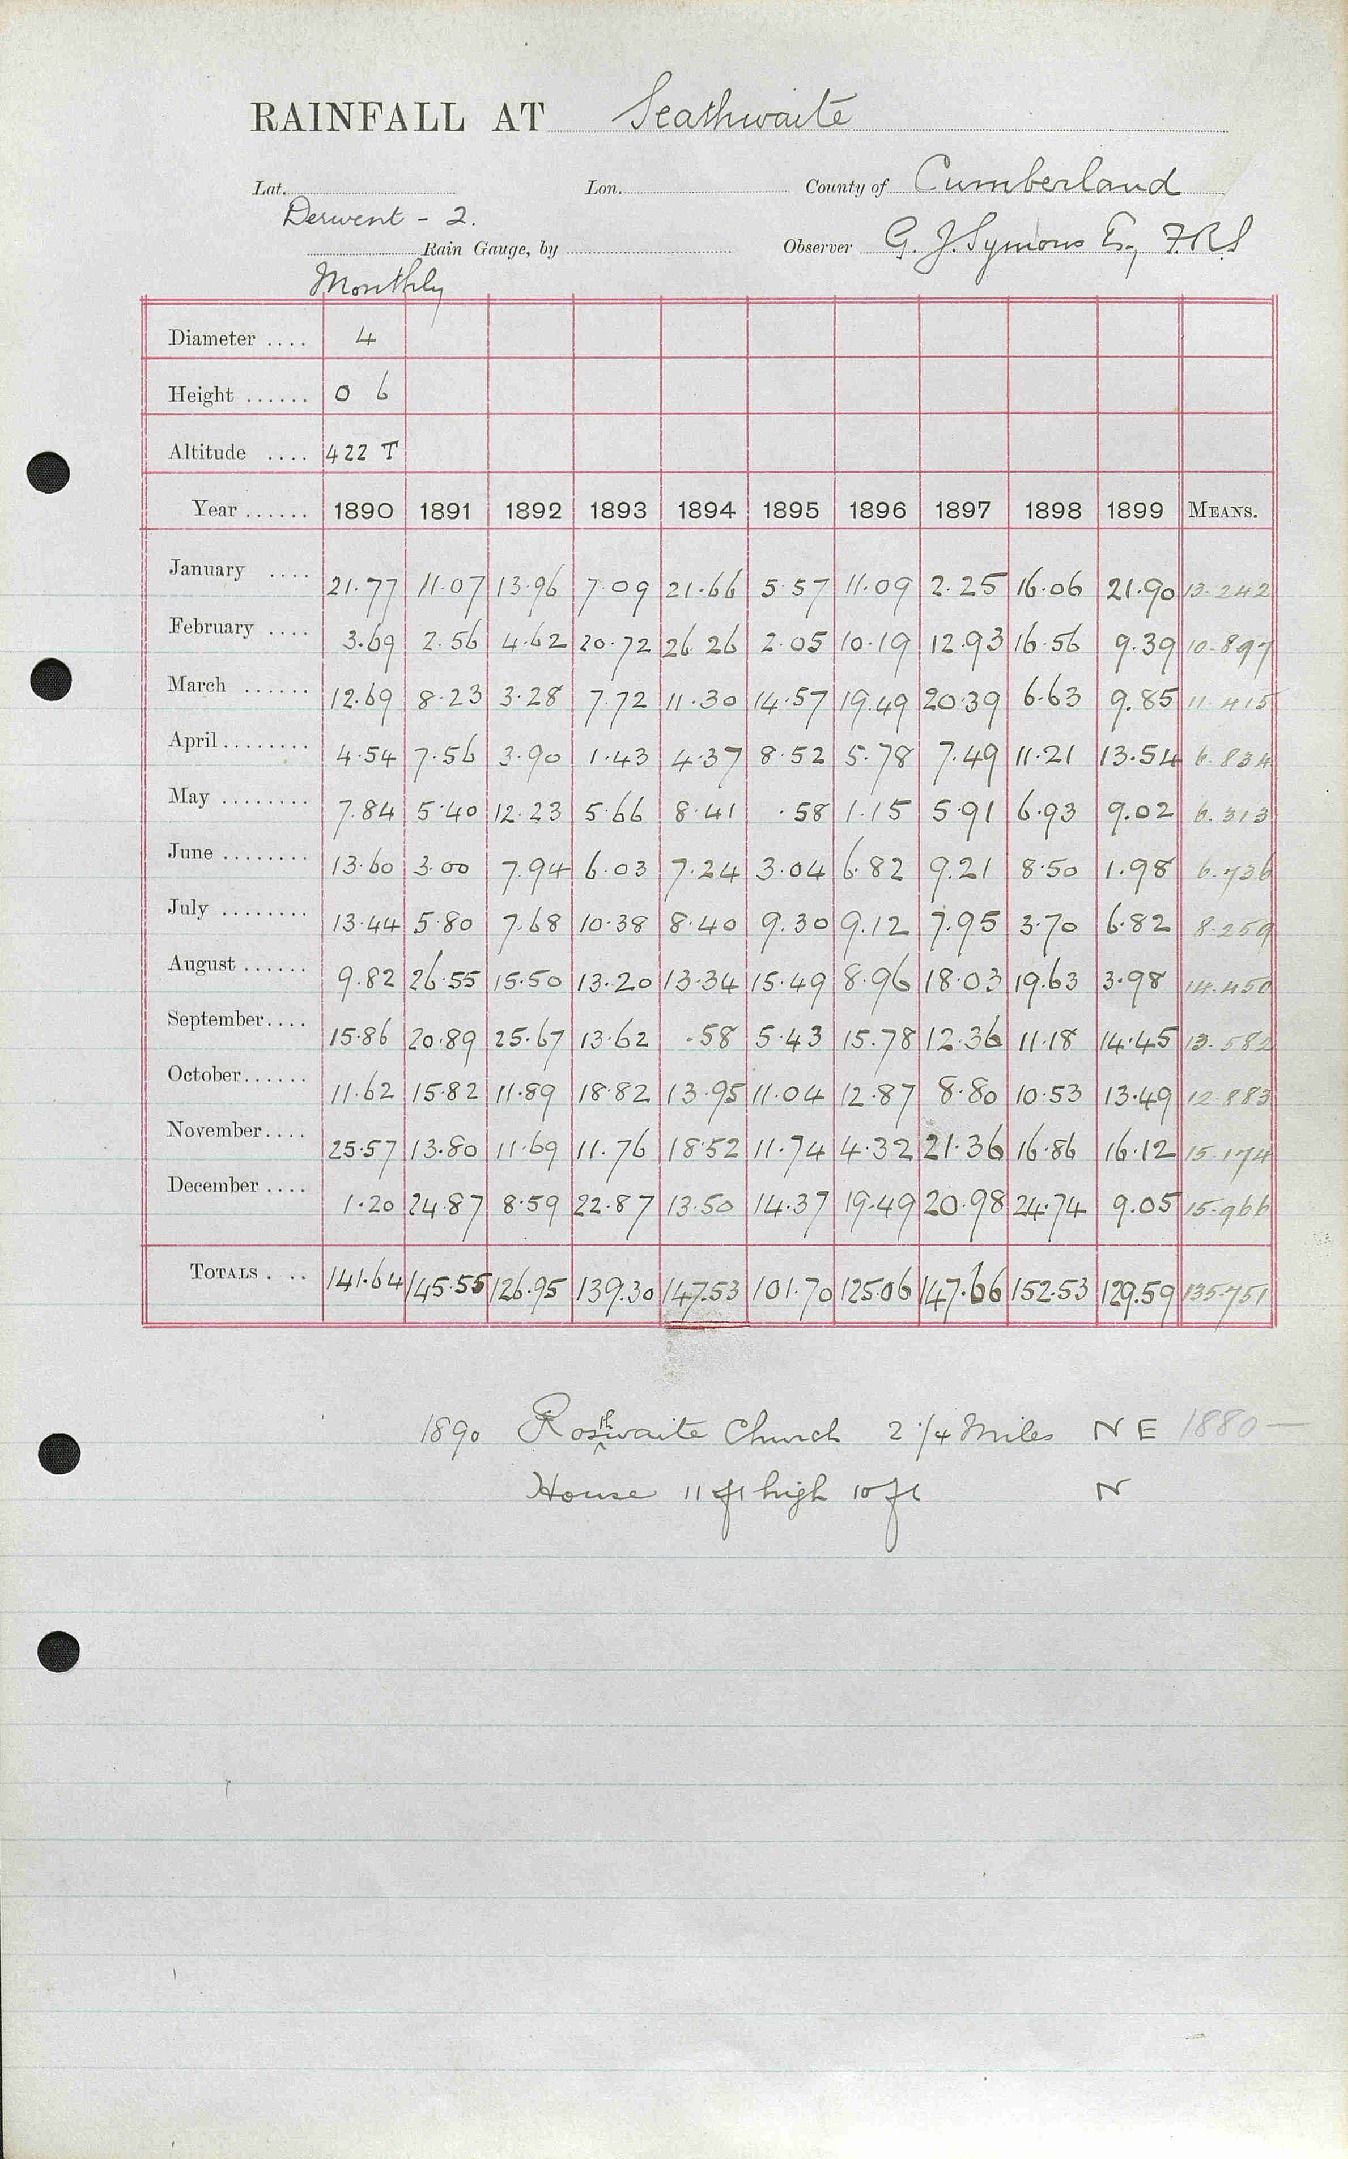 RAINFALL AT Seathwaite
Lat. Lon. County of Cumberland
Derwent - 2.
Rain Gauge, by Observer G. J. Symons Esq FRS
Monthly
Diameter .... 4
Height ...... 0 6
Altitude .... 422 T
Year ...... 1890 1891 1892 1893 1894 1895 1896 1897 1898 1899 MEANS.
January .... 21.77 11.07 13.96 7.09 21.66 5.57 11.09 2.25 16.06 21.90 13.242
February .... 3.69 2.56 4.62 20.72 26.26 2.05 10.19 12.93 16.56 9.39 10.897
March ...... 12.69 8.23 3.28 7.72 11.30 14.57 19.49 20.39 6.63 9.85 11.415
April ........ 4.54 7.56 3.90 1.43 4.37 8.52 5.78 7.49 11.21 13.54 6.834
May ........ 7.84 5.40 12.23 5.66 8.41 .58 1.15 5.91 6.93 9.02 6.313
June ........ 13.60 3.00 7.94 6.03 7.24 3.04 6.82 9.21 8.50 1.98 6.736
July ........ 13.44 5.80 7.68 10.38 8.40 9.30 9.12 7.95 3.70 6.82 8.259
August ...... 9.82 26.55 15.50 13.20 13.34 15.49 8.96 18.03 19.63 3.98 14.450
September.... 15.86 20.89 25.67 13.62 .58 5.43 15.78 12.36 11.18 14.45 13.582
October...... 11.62 15.82 11.89 18.82 13.95 11.04 12.87 8.80 10.53 13.49 12.883
November.... 25.57 13.80 11.69 11.76 18.52 11.74 4.32 21.36 16.86 16.12 15.174
December .... 1.20 24.87 8.59 22.87 13.50 14.37 19.49 20.98 24.74 9.05 15.966
TOTALS . .. 141.64 145.55 126.95 139.30 147.53 101.70 125.06 147.66 152.53 129.59 135.751
1890 Rosthwaite Church 2 1/4 Miles N E 1880 —
House 11 ft high 10 ft N